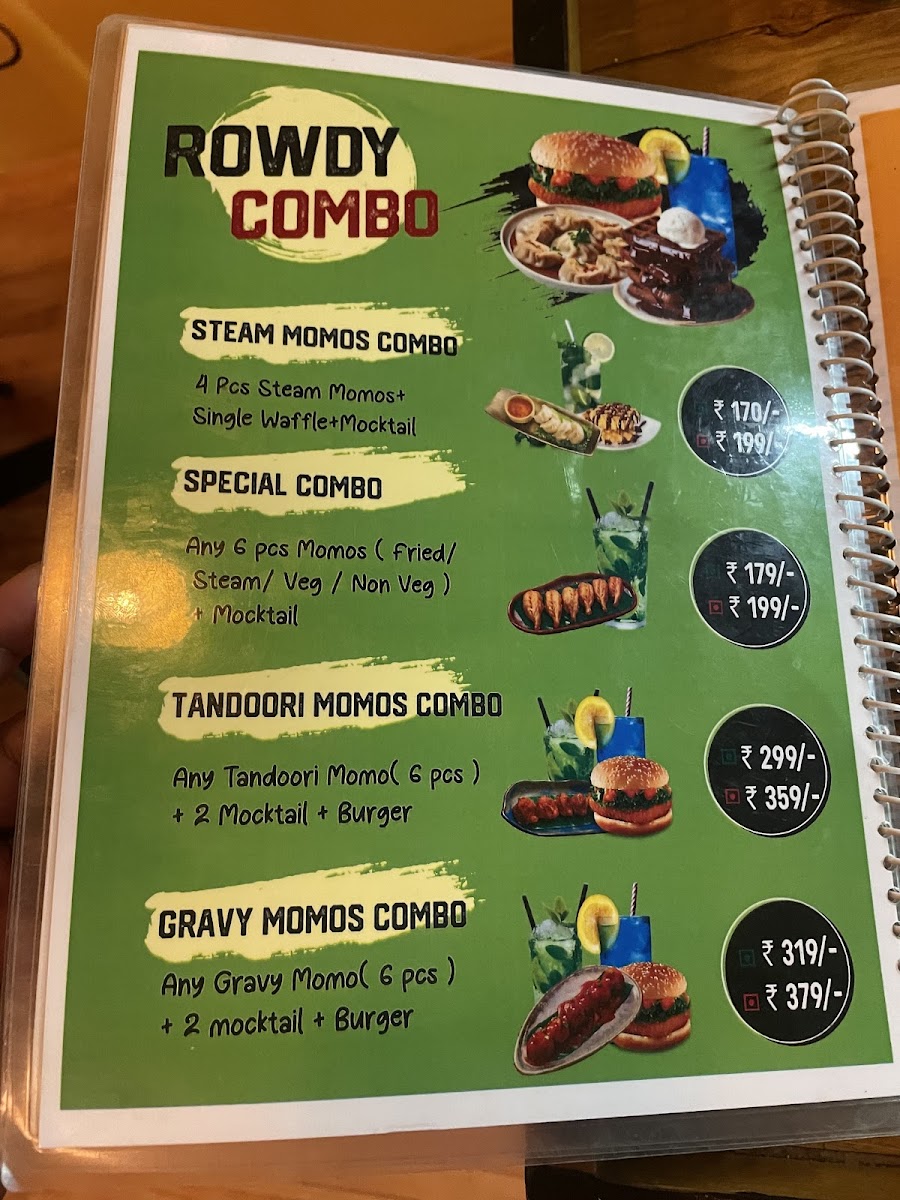 ROWDY
COMBO
STEAM MOMOS COMBO
4 Pcs Steam Momos+
Single Waffle+Mocktail
₹ 170/-
₹ 199/-
SPECIAL COMBO
Any 6 pcs Momos ( Fried/
Steam/ Veg / Non Veg )
+ Mocktail
₹ 179/-
₹ 199/-
TANDOORI MOMOS COMBO
Any Tandoori Momo( 6 pcs )
+ 2 Mocktail + Burger
₹ 299/-
₹ 359/-
GRAVY MOMOS COMBO
Any Gravy Momo( 6 pcs )
+ 2 mocktail + Burger
₹ 319/-
₹ 379/-